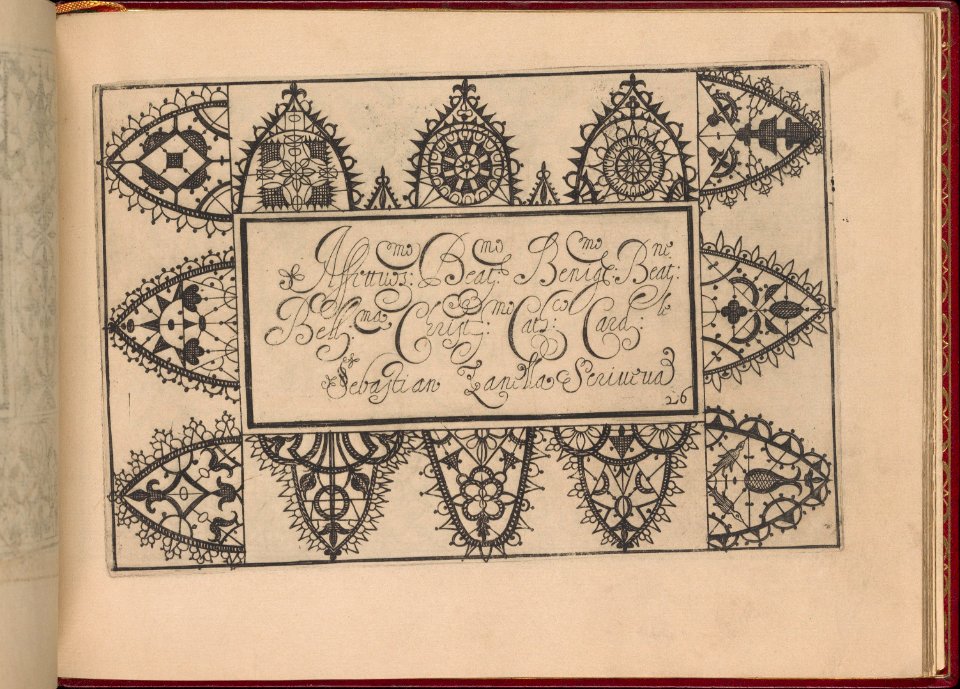 Affituos: mo Beat: mo Benig: mo Beat: ne
Bell: ma Crist: mo Cat: Card: le
Sebastian Zanella Scriveva
26